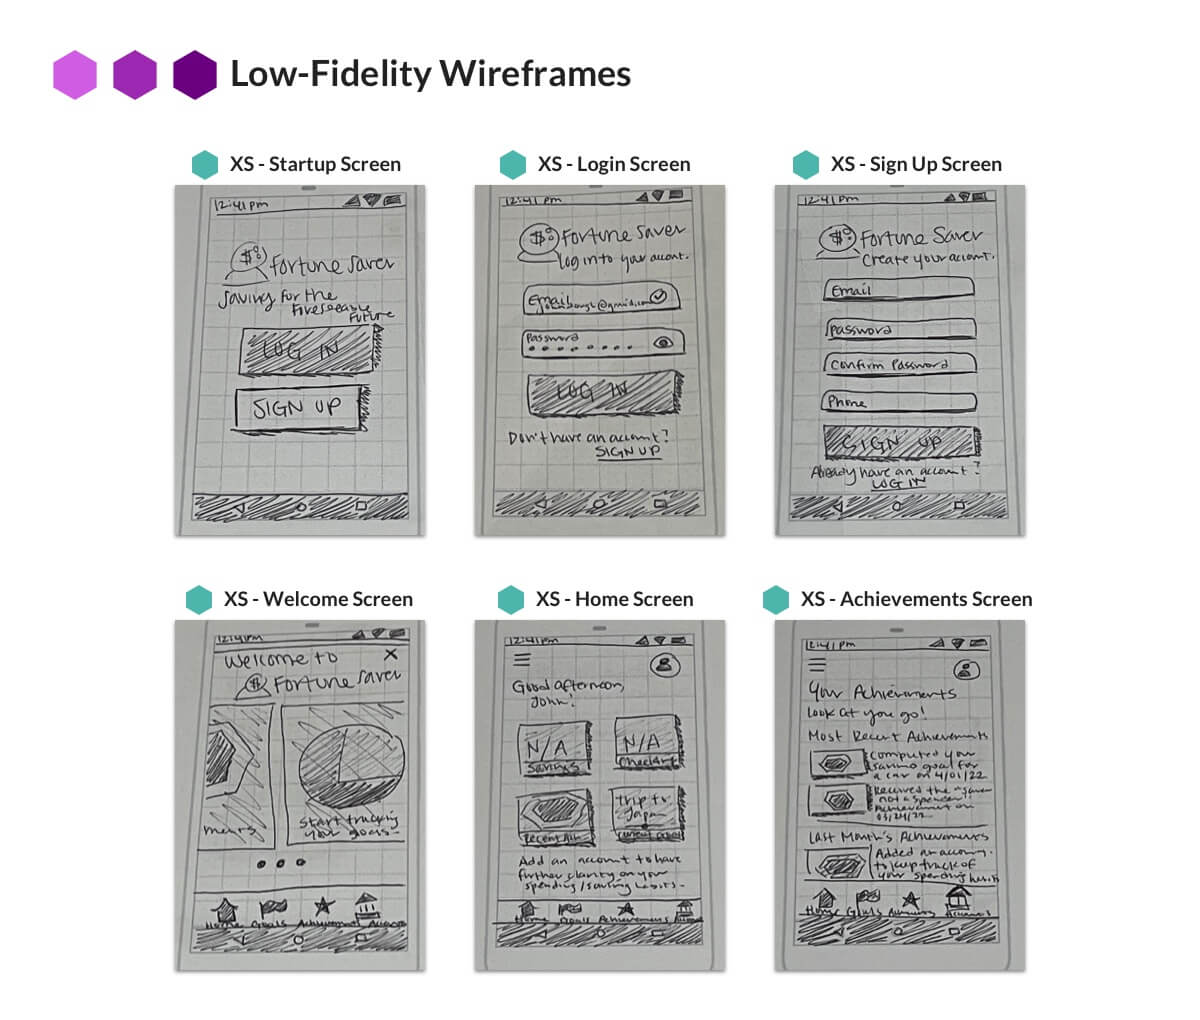 Low-Fidelity Wireframes
XS - Startup Screen
12:41 pm
$
Fortune Saver
Saving for the
foreseeable
future
LOG IN
SIGN UP
XS - Login Screen
12:41 pm
$
Fortune Saver
Log into your account.
Email
Password
LOG IN
Don't have an account?
SIGN UP
XS - Sign Up Screen
12:41 pm
$
Fortune Saver
Create your account.
Email
Password
Confirm Password
Phone
SIGN UP
Already have an account?
LOG IN
XS - Welcome Screen
12:41pm
Welcome to
X
$
Fortune Saver
ments
Start tracking
your goals-
Home Goals
XS - Home Screen
12:41pm
Good afternoon,
John!
N/A
Savings
N/A
Trip to
Japan
Add an account to have
further clarity on your
spending/saving habits-
Home Goals Achievements
XS - Achievements Screen
12:41pm
Your Achievements
Look at you go!
Most Recent Achievements
Completed your
saving goal for
a car on 4/01/22
Received the "saver
not a spender"
Achievement on
03/24/22
Last Month's Achievements
to keep track of
your spending habits
Home Goals